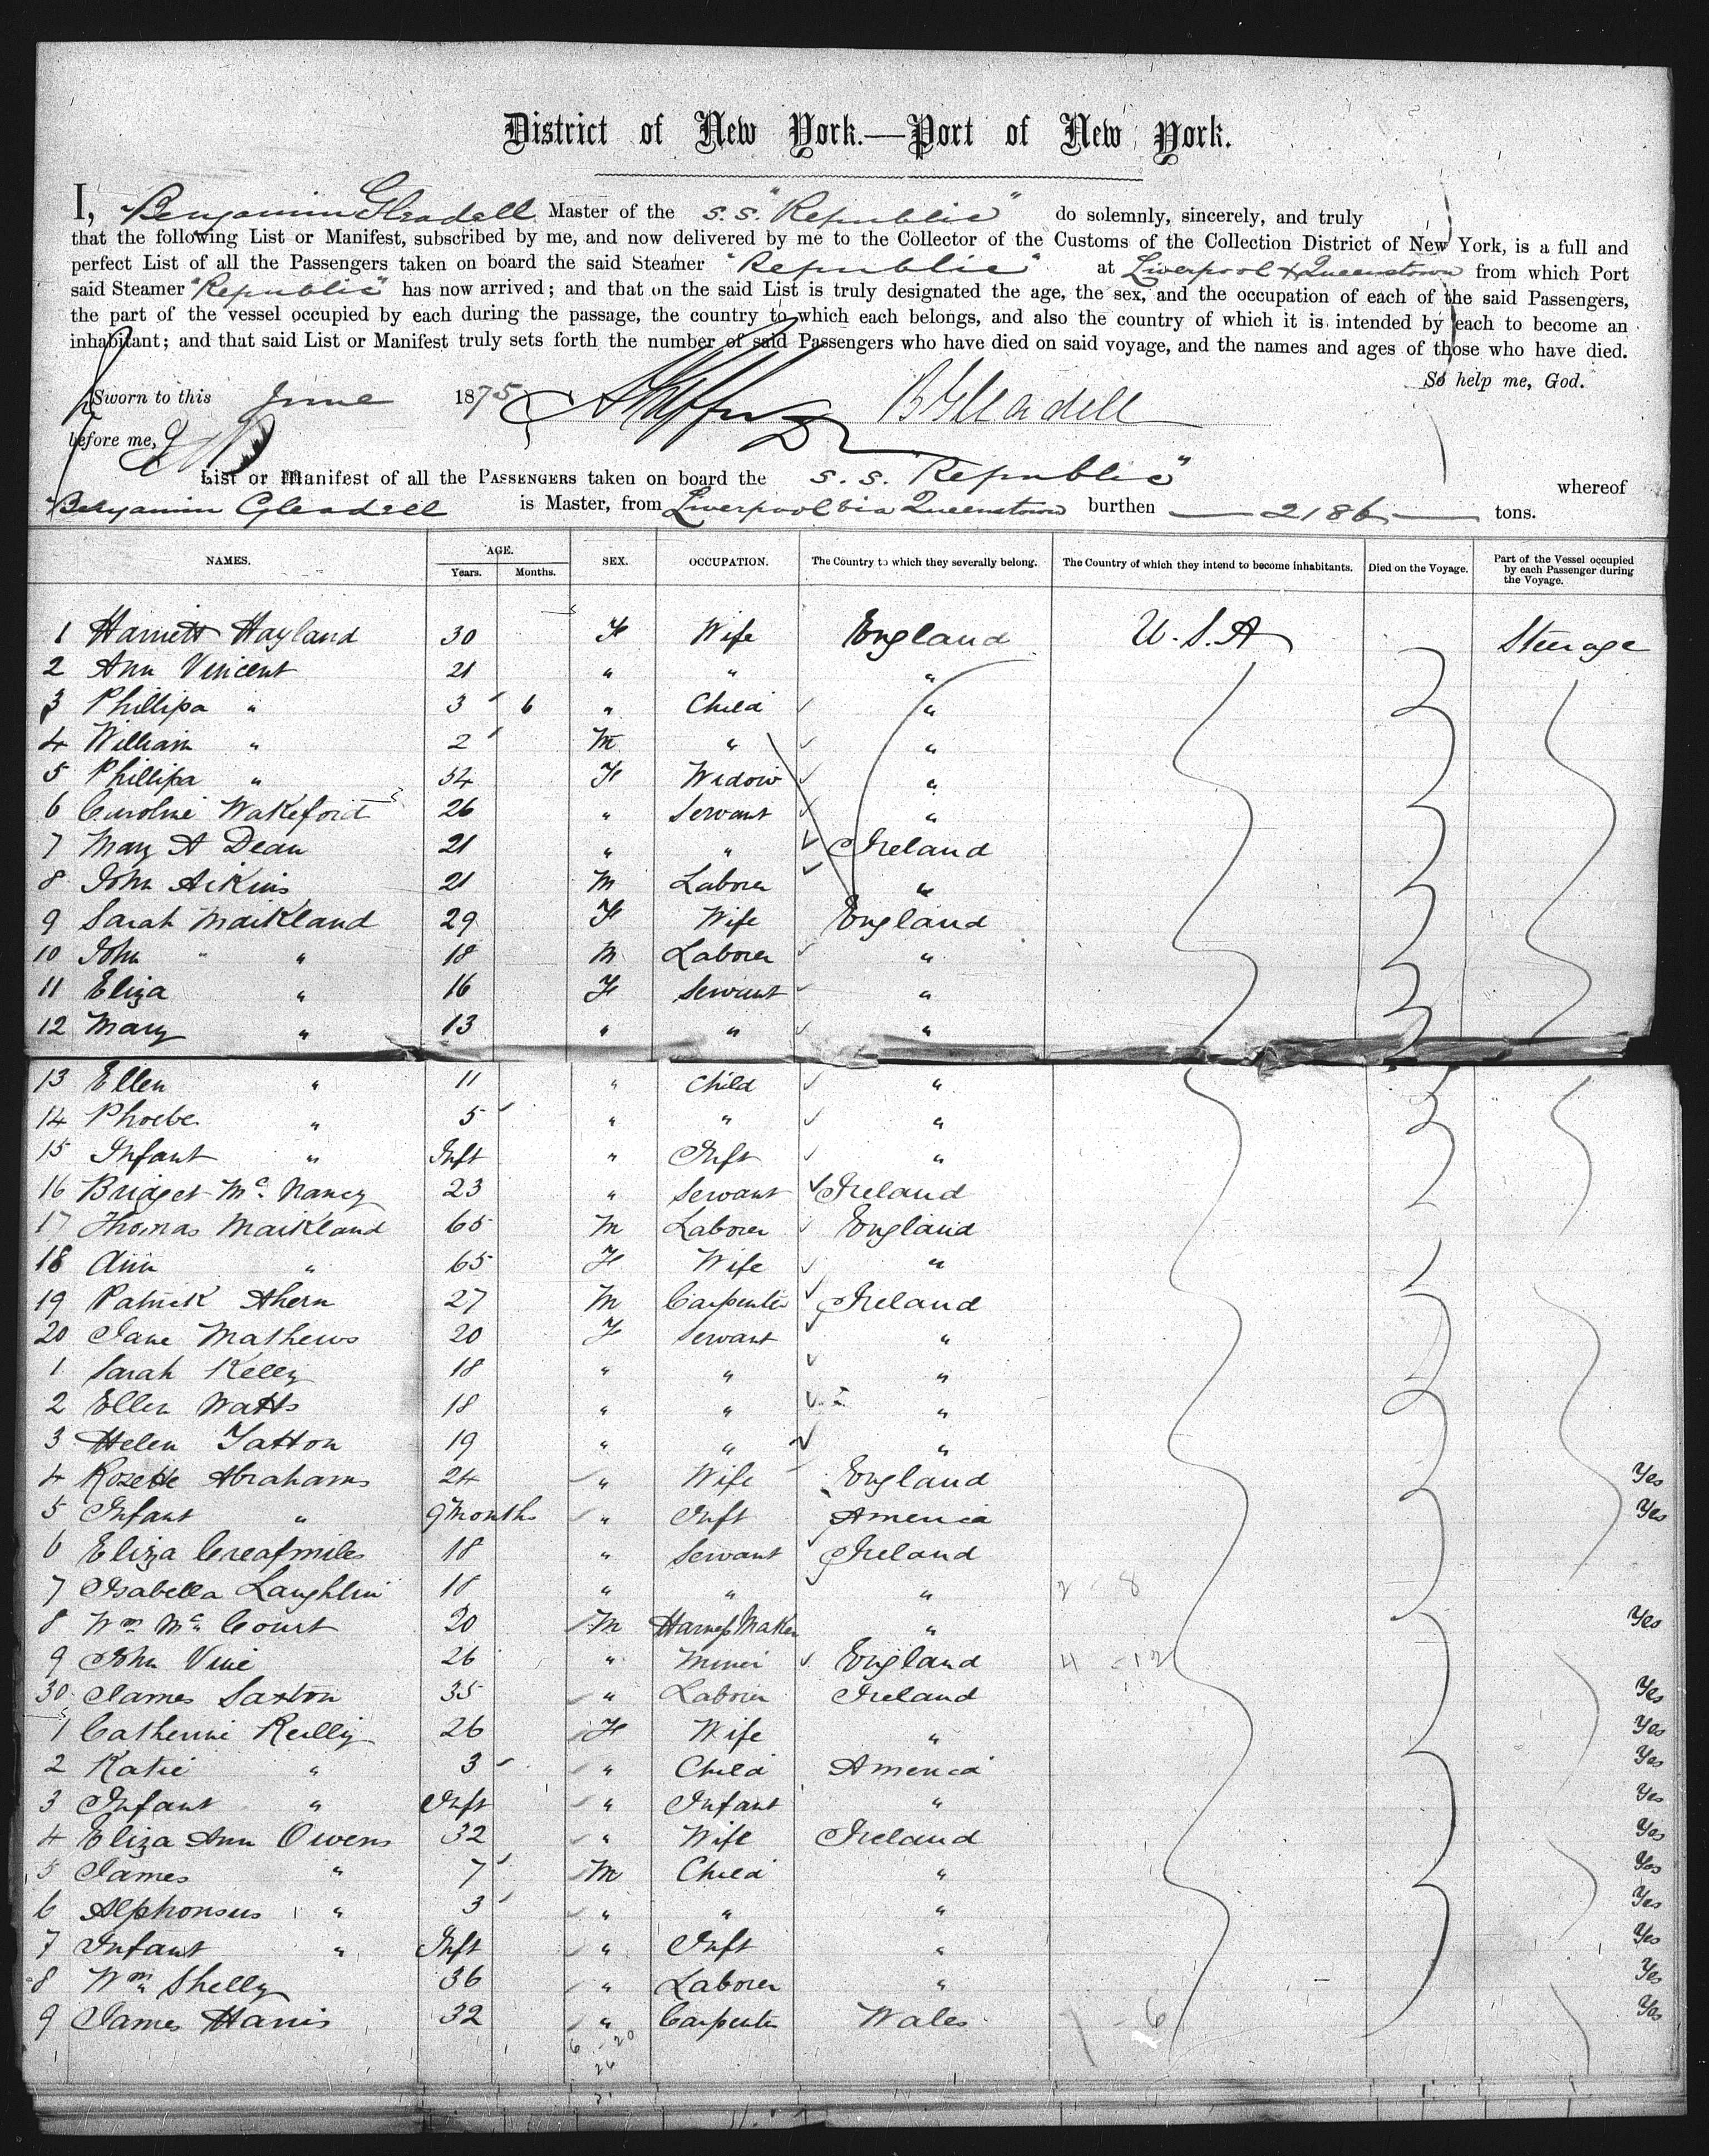 District of New York.—Port of New York.
I, Benjamin Gleadell Master of the S.S. "Republic" do solemnly, sincerely, and truly
that the following List or Manifest, subscribed by me, and now delivered by me to the Collector of the Customs of the Collection District of New York, is a full and
perfect List of all the Passengers taken on board the said Steamer "Republic" at Liverpool & Queenstown from which Port
said Steamer "Republic" has now arrived; and that on the said List is truly designated the age, the sex, and the occupation of each of the said Passengers,
the part of the vessel occupied by each during the passage, the country to which each belongs, and also the country of which it is intended by each to become an
inhabitant; and that said List or Manifest truly sets forth the number of said Passengers who have died on said voyage, and the names and ages of those who have died.
So help me, God.
Sworn to this June 1875 B Gleadell
before me,
List or Manifest of all the PASSENGERS taken on board the S.S. "Republic" whereof
Benjamin Gleadell is Master, from Liverpool via Queenstown burthen 2186 tons.
NAMES. AGE. Years. Months. SEX. OCCUPATION. The Country to which they severally belong. The Country of which they intend to become inhabitants. Died on the Voyage. Part of the Vessel occupied by each Passenger during the Voyage.
1 Harriett Hayland 30 F Wife England U.S.A Steerage
2 Ann Vincent 21 " " "
3 Phillipa " 3 6 " Child "
4 William " 2 M " "
5 Phillipa " 54 F Widow "
6 Caroline Wakeford 26 " Servant "
7 Mary A Dean 21 " " Ireland
8 John Aikins 21 M Laborer "
9 Sarah Maikland 29 F Wife England
10 John " " 18 M Laborer "
11 Eliza " 16 F Servant "
12 Mary " 13 " " "
13 Ellen " 11 " Child "
14 Phoebe " 5 " " "
15 Infant " Inft " Inft "
16 Bridget Mc Nancy 23 " Servant Ireland
17 Thomas Maikland 65 M Laborer England
18 Ann " 65 F Wife "
19 Patrick Ahern 27 M Carpenter Ireland
20 Jane Mathews 20 F Servant "
1 Sarah Kelly 18 " " "
2 Ellen Watts 18 " " "
3 Helen Tatton 19 " " "
4 Rozette Abrahams 24 " Wife England Yes
5 Infant " 9 Months " Inft America Yes
6 Eliza Creafmiles 18 " Servant Ireland
7 Isabella Laughlin 18 " " "
8 Wm Mc Court 20 M Harness Maker " Yes
9 John Vine 26 " Miner England
30 James Saxton 35 " Laborer Ireland Yes
1 Catherine Reilly 26 F Wife " Yes
2 Katie " 3 " Child America Yes
3 Infant " Inft " Infant " Yes
4 Eliza Ann Owens 32 " Wife Ireland Yes
5 James " 7 M Child " Yes
6 Alphonsus " 3 " " " Yes
7 Infant " Inft " Inft " Yes
8 Wm Shelly 36 " Laborer " Yes
9 James Harris 32 " Carpenter Wales Yes